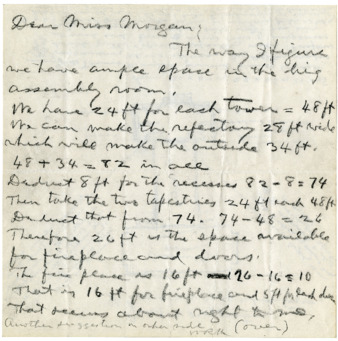 Dear Miss Morgan;
The way I figure
we have ample space in the big
assembly room.
We have 24 ft for each tower = 48 ft
We can make the refectory 28 ft wide
which will make the outside 34 ft.
48 + 34 = 82 in all
Deduct 8 ft for the recesses 82 - 8 = 74
Then take the two tapestries 24 ft each 48 ft
Deduct that from 74. 74 - 48 = 26
Therefore 26 ft is the space available
for fireplace and doors.
The fire place is 16 ft 26 - 16 = 10
That is 16 ft for fireplace and 5 ft for each door
That seems about right to me.
(Another suggestion on other side (over)
WRH